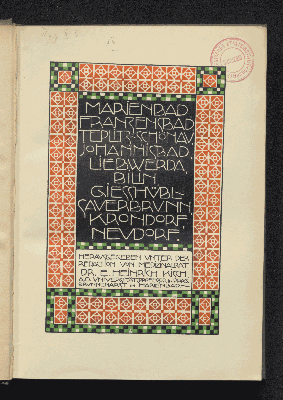 MARIENBAD
FRANZENSBAD
TEPLITZ-SCHÖNAU,
JOHANNISBAD,
LIEBWERDA,
BILIN
GIESSHÜBL-
SAUERBRUNN
KRONDORF
NEUDORF.
HERAUSGEGEBEN UNTER DER
REDACTION VON MEDIZINALRAT
DR. E. HEINRICH KISCH,
IN MARIENBAD